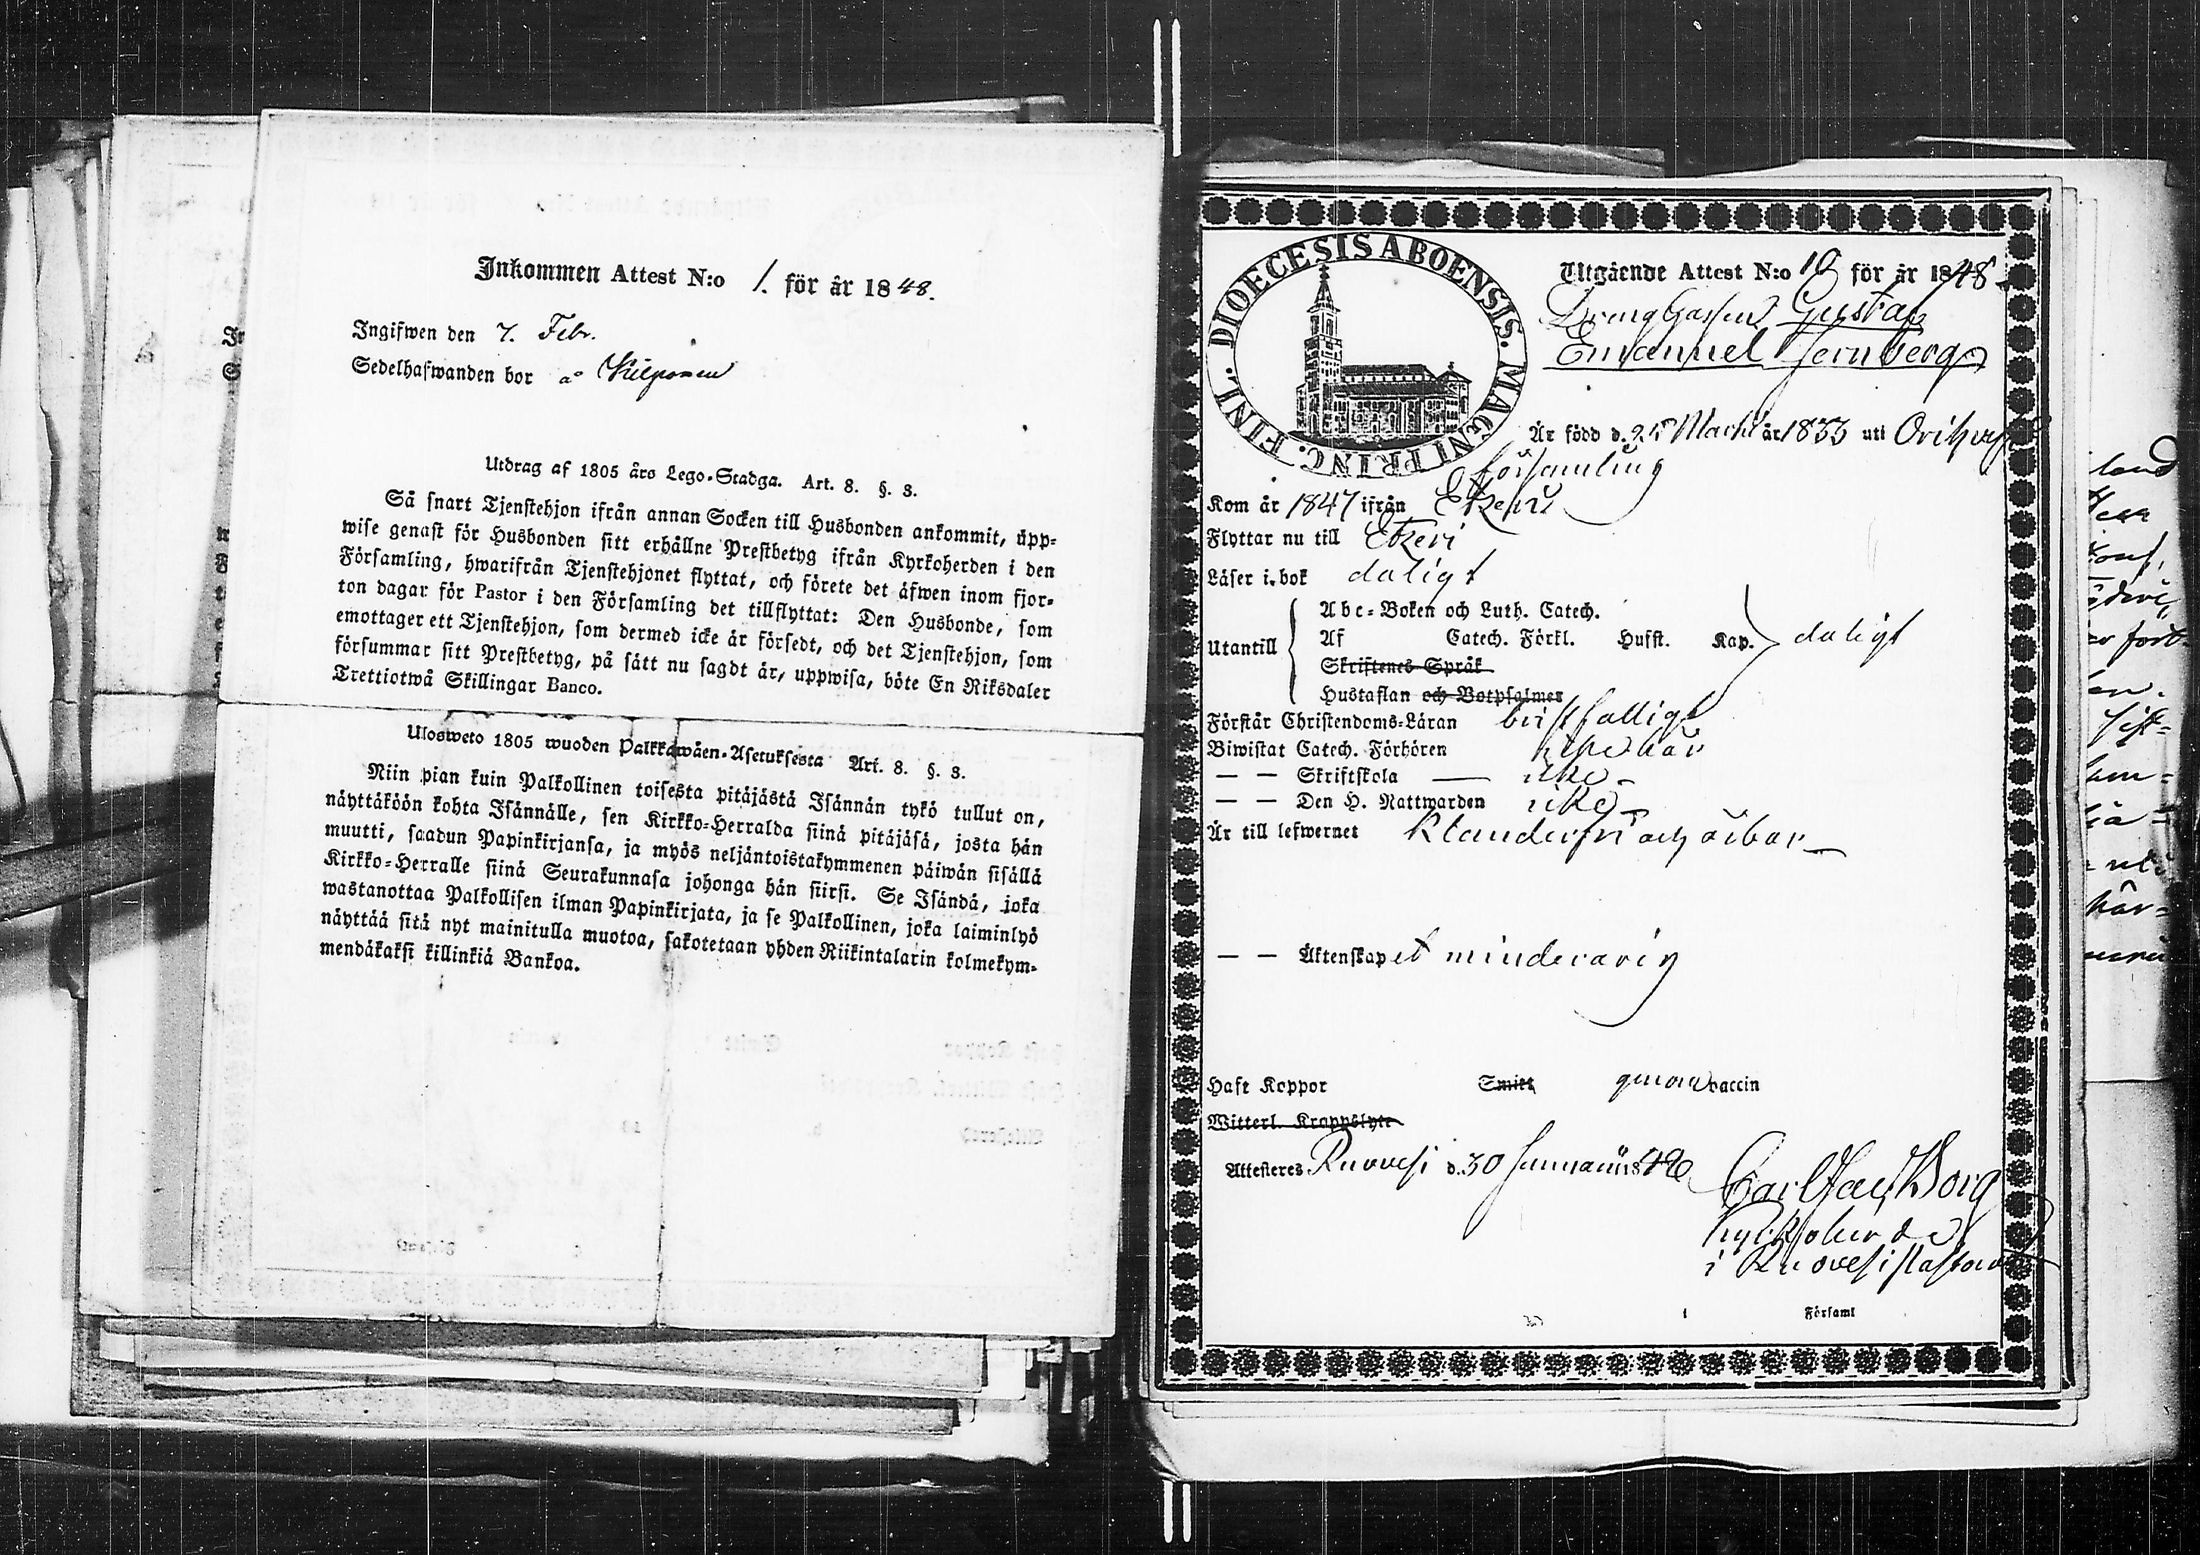 Inkommen Attest N:o 1. för år 1848.
Ingifwen den 7. Febr.
Sedelhafwanden bor å Kilponen
Utdrag af 1805 års Lego-Stadga. Art. 8. §. 3.
Så snart Tjenstehjon ifrån annan Socken till Husbonden ankommit, upp-
wise genast för Husbonden sitt erhållne Prestbetyg ifrån Kyrkoherden i den
Församling, hwarifrån Tjenstehjonet flyttat, och förete det äfwen inom fjor-
ton dagar för Pastor i den Församling det tillflyttat: Den Husbonde, som
emottager ett Tjenstehjon, som dermed icke är försedt, och det Tjenstehjon, som
försummar sitt Prestbetyg, på sätt nu sagdt är, uppwisa, böte En Riksdaler
Trettiotwå Skillingar Banco.
Ulosweto 1805 wuoden Palkkawäen-Asetuksesta Art. 8. §. 3.
Niin pian kuin Palkollinen toisesta pitäjästä Isännän tykö tullut on,
näyttäköön kohta Isännälle, sen Kirkko-Herralda siinä pitäjäsä, josta hän
muutti, saadun Papinkirjansa, ja myös neljäntoistakymmenen päiwän sisällä
Kirkko-Herralle siinä Seurakunnasa johonga hän siirsi. Se Isändä, joka
wastanottaa Palkollisen ilman Papinkirjata, ja se Palkollinen, joka laiminlyö
näyttää sitä nyt mainitulla muotoa, sakotetaan yhden Riikintalarin kolmekym-
mendäkaksi killinkiä Bankoa.
DIOECESIS ABOENSIS. MAGNI PRINC. FINL.
Utgående Attest N:o 10 för år 1848.
Gustaf
Emanuel Jernberg
Är född d. 25 Martii år 1833 uti
församling
Kom år 1847 ifrån Etzeri
Flyttar nu till Etzeri
Läser i bok daligt
Abc-Boken och Luth. Catech.
Utantill Af Catech. Förkl. Husst. Kap. daligt
Skriftenes Språk
Hustaflan och Botpsalmer
Förstår Christendoms-Läran bristfälligt
Biwistat Catech. Förhören här
— — Skriftskola — icke
— — Den H. Nattwarden icke
Är till lefwernet klanderfri och ärbar
— — Äktenskapet minderårig
Haft Koppor Smitt genom vaccin
Witterl. Krappölyte
Attesteres Ruovesi d. 30 Januarii 1848
Carl Borg
Kyrkoherde
i Ruovesi
i Församl